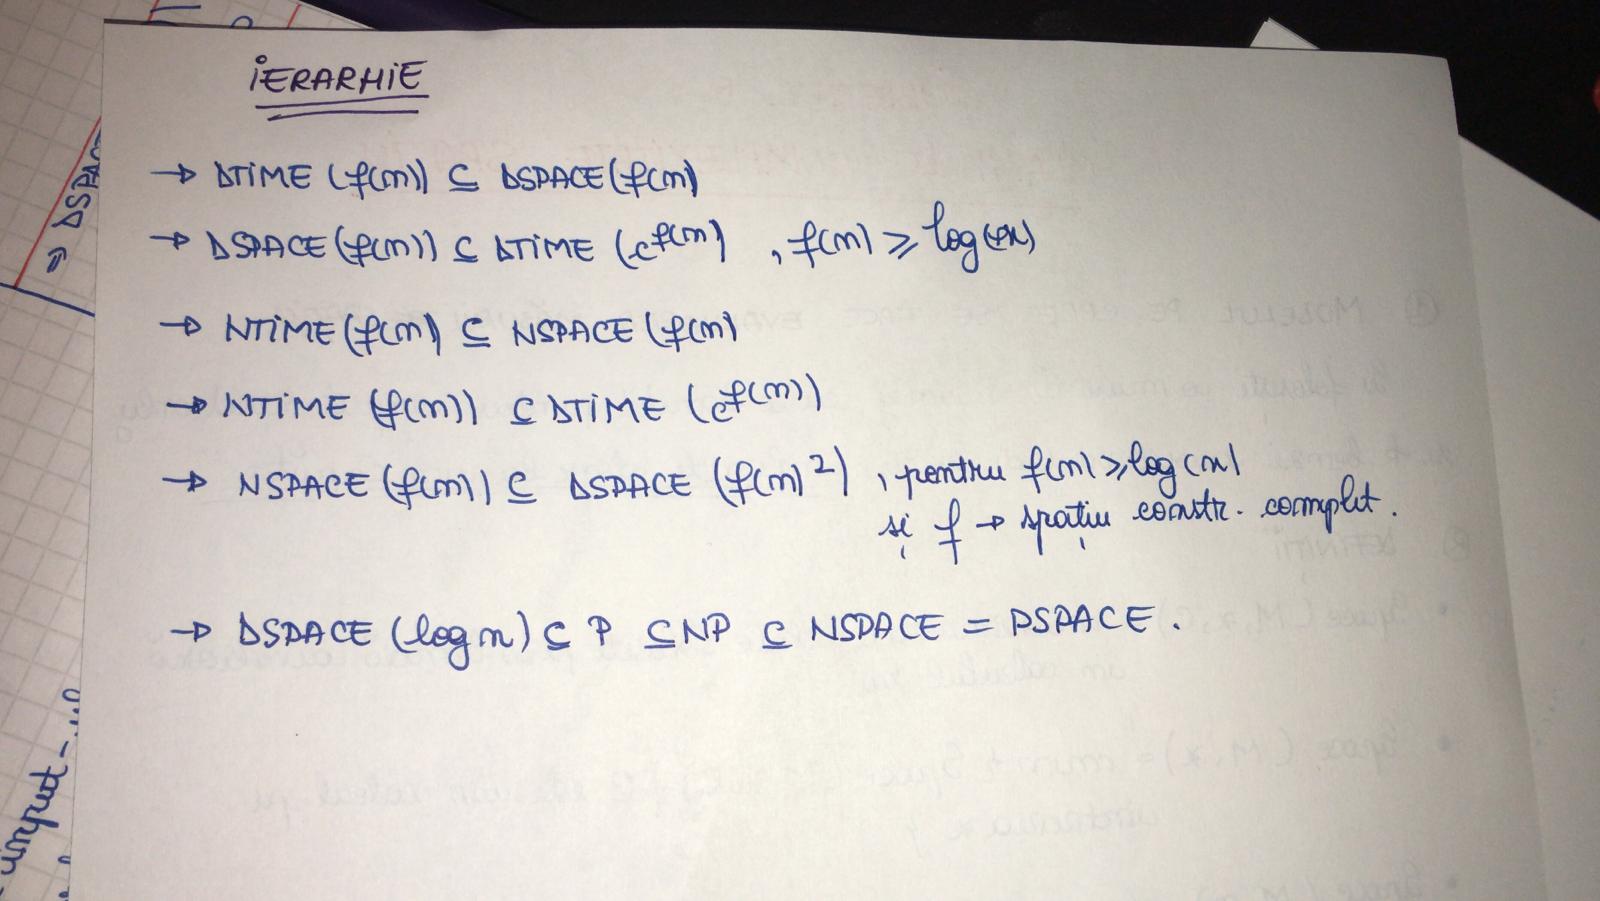 IERARHIE
→ DTIME (f(n)) ⊆ DSPACE (f(n)
→ DSPACE (f(n)) ⊆ DTIME (c^f(n)) , f(n) ≥ log(n)
→ NTIME (f(n) ⊆ NSPACE (f(n)
→ NTIME (f(n)) ⊆ DTIME (c^f(n))
→ NSPACE (f(n)) ⊆ DSPACE (f(n)²) , pentru f(n) ≥ log(n)
și f → spațiu constr. complet.
→ DSPACE (log n) ⊆ P ⊆ NP ⊆ NSPACE = PSPACE.
⇒ DSPAC
input